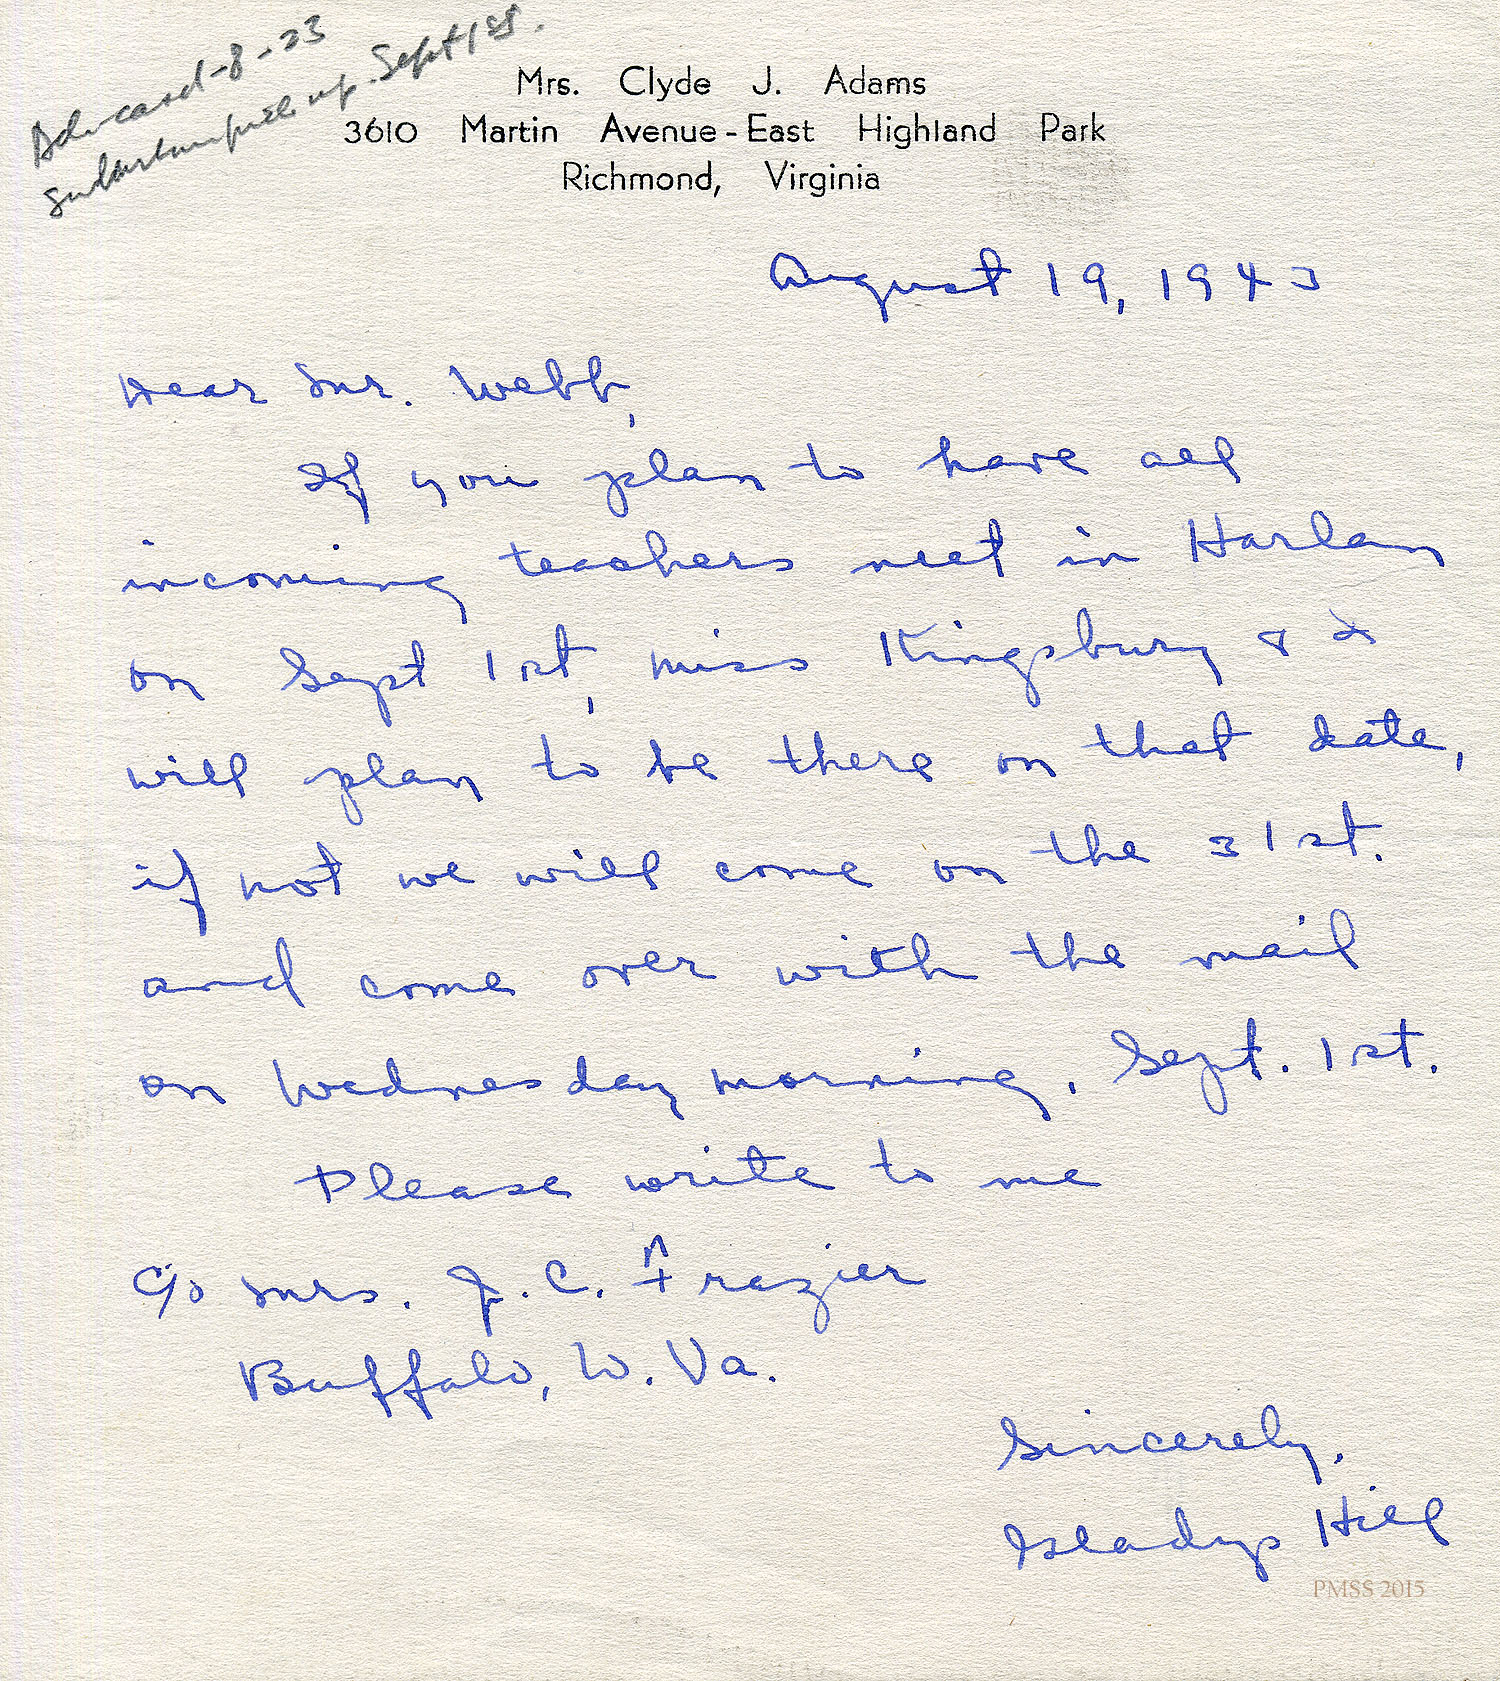 Adv. card - 8 - 23
up. Sept 1st.
Mrs. Clyde J. Adams
3610 Martin Avenue - East Highland Park
Richmond, Virginia
August 19, 1943
Dear Mr. Webb,
If you plan to have all
incoming teachers meet in Harlan
on Sept 1st, Miss Kingsbury & I
will plan to be there on that date,
if not we will come on the 31st.
and come over with the mail
on Wednesday morning, Sept. 1st.
Please write to me
c/o Mrs. J. C. Frazier
Buffalo, W. Va.
Sincerely,
Gladys Hill
PMSS 2015